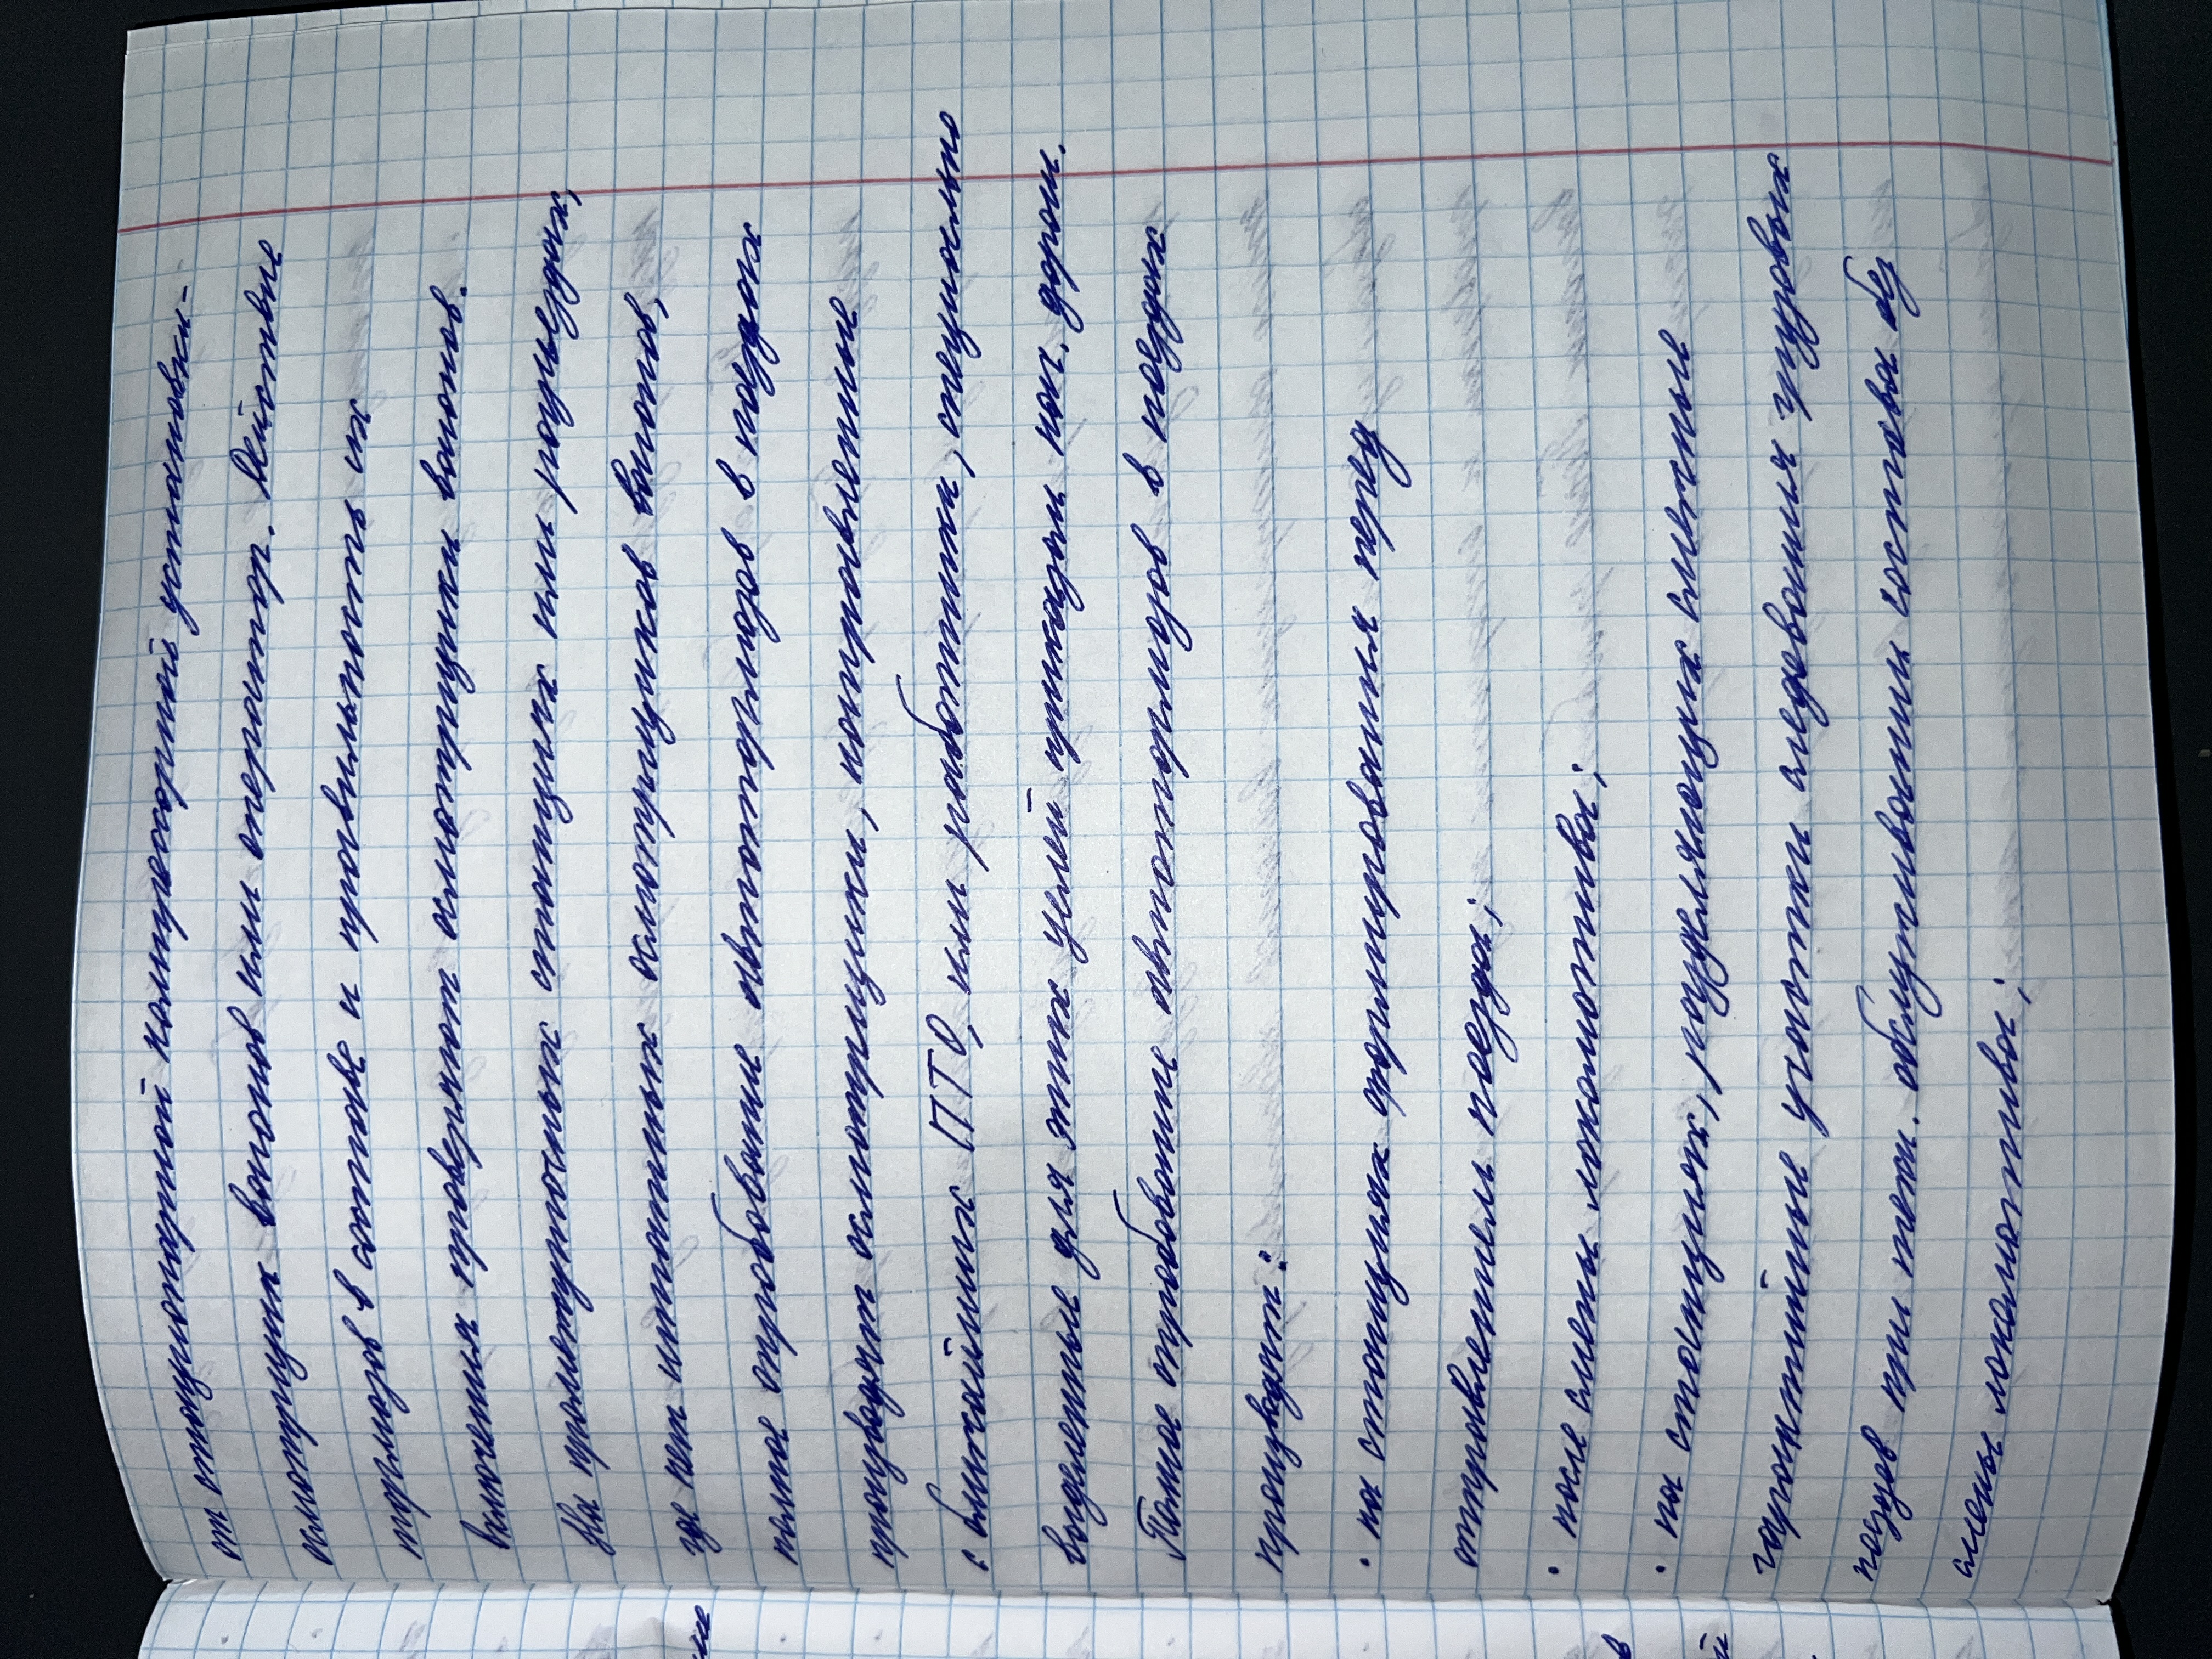 от стационарной компрессорной установки-
осмотрщик вагонов или оператор. Действие
тормозов в составе и правильность их
включения проверяют осмотрщики вагонов.
На промежуточных станциях или разъездах,
где нет штатных осмотрщиков вагонов,
полное опробование автотормозов в поездах
производят осмотрщики, направленные
с ближайших ПТО, или работники, специально
выделенные для этих целей приказом нач. дороги.
Полное опробование автотормозов в поездах
производят:
• на станциях формирования перед
отправлением поезда;
• после смены локомотива;
• на станциях, разделяющих смежные
гарантийные участки следования грузовых
поездов при техн. обслуживании состава без
смены локомотива;